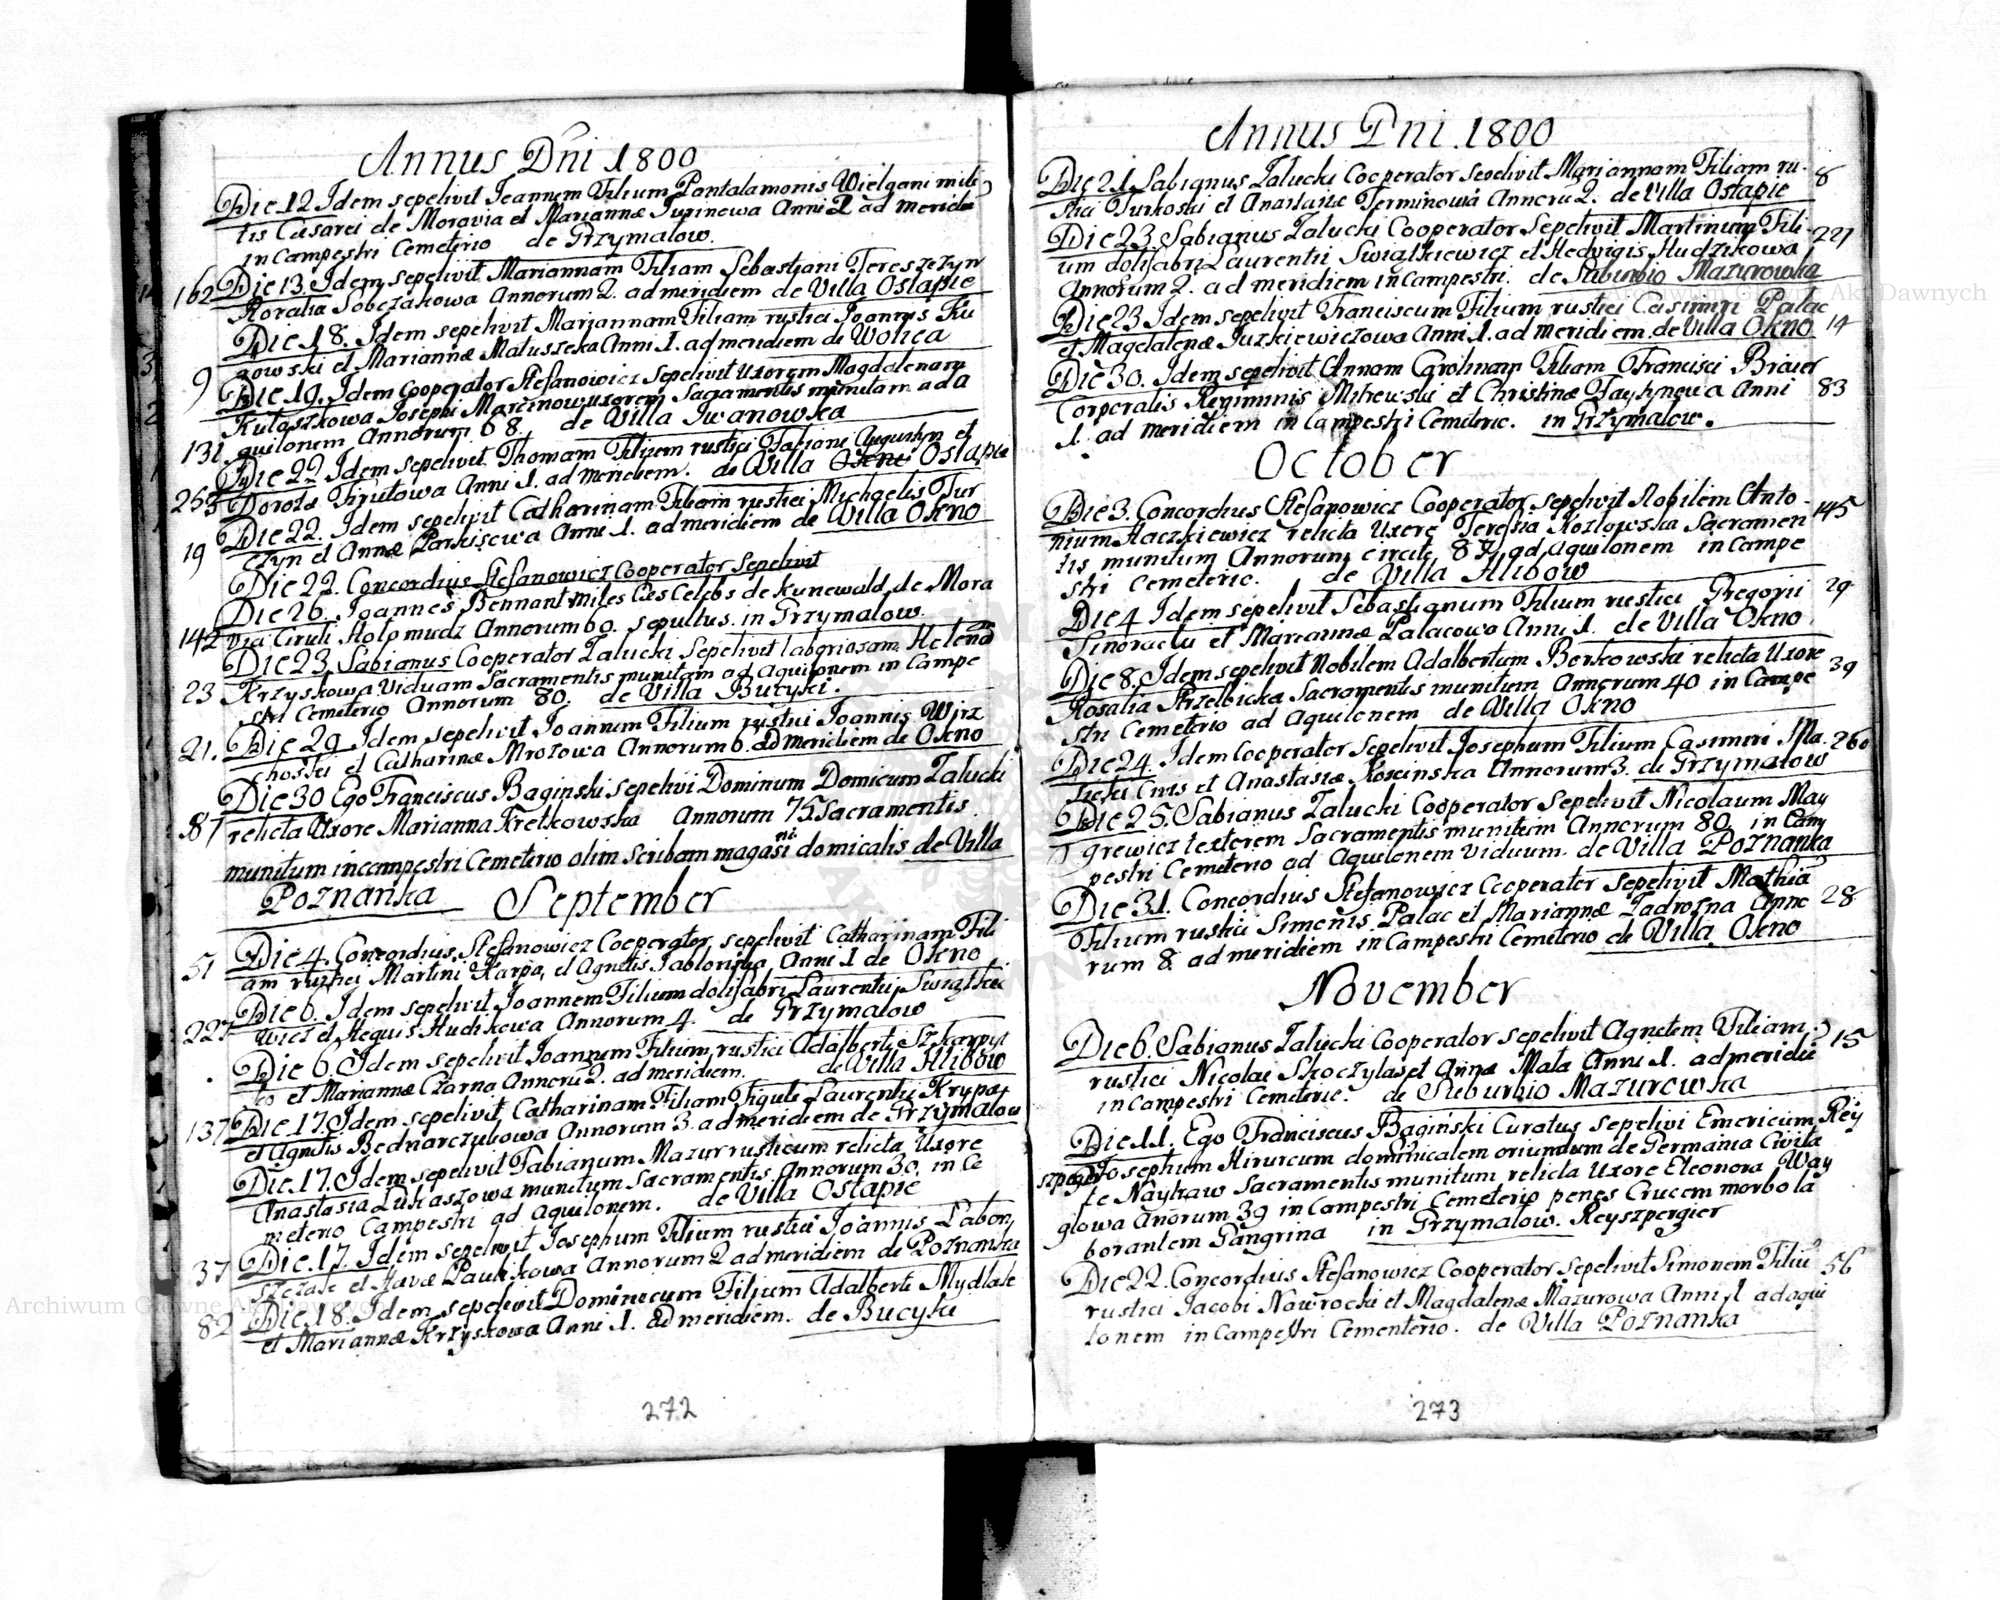 Annus Dni 1800
Die 12. Idem sepelivit Ioannem Filium Pantalamonis Wielgani mili
tis Cæsarei de Moravia et Mariannæ Anni 1 ad meridie
in Campestri Cemeterio de Grzymalow.
162 Die 13. Idem sepelivit Mariannam Filiam Sebastiani Tereszczyn
Roralia Sobczakowa Annorum 2. ad meridiem de Villa Ostapie
Die 18. Idem sepelivit Mariannam Filiam rustici Joannis Ku
9 zowski et Mariannæ Matuszeka Anni 1. ad meridiem de Wolica
Die 19. Idem Cooperator Stefanowicz Sepelivit Uxorem Magdalenam
Kutaszkowa Josephi uxorem Sacramentis munitam ad a
131 quilonem Annorum 68. de Villa Iwanowka
Die 22 Idem sepelivit Thomam Filium rustici Fabiani Augustyn et
253 Dorotæ Anni 1. ad meridiem. de Villa Okno Ostapie
Die 22. Idem sepelivit Catharinam Filiam rustici Michaelis Tur
19 czyn et Annæ Anni 1. ad meridiem de Villa Okno
Die 22. Concordius Stefanowicz Cooperator Sepelivit
Die 26. Joannes Bennant miles Cæs Celebs de Kunewald de Mora
142 via Annorum 60. sepultus. in Grzymalow.
Die 23. Sabianus Cooperator Zalucki Sepelivit laboriosam Helena
23 Krzyskowa Viduam Sacramentis munitam ad Aquilonem in Campe
stri Cemeterio Annorum 80. de Villa Bucyki.
Die 29 Idem sepelivit Joannem Filium rustici Joannis Wirz
21. choski et Catharinæ Mrozowa Annorum 6. ad meridiem de Okno
Die 30 Ego Franciscus Baginski sepelivi Dominum Domicum Zalucki
87 relicta Uxore Marianna Kretkowska Annorum 75. Sacramentis
munitum in campestri Cemeterio olim Scribam magasi ni. domicalis de Villa
Poznanka
September
51 Die 4. Concordius Stefanowicz Cooperator sepelivit Catharinam Fili
am rustici Martini Karpa, et Agnetis Anni 1 de Okno
Die 6. Idem sepelivit Joannem Filium dolifabri Laurentii Swiątkie
227 wicz et Hegvis Hudikowa Annorum 4. de Grzymalow
Die 6. Idem sepelivit Joannem Filium rustici Adalberti
ko et Mariannæ Czarna Annoru 2. ad meridiem. de Villa Hlibow
137 Die 17. Idem sepelivit Catharinam Filiam Figuli Laurentii Krypaj
et Agnetis Bednarczukowa Annorum 3. ad meridiem de Grzymalow
Die 17. Idem sepelivit Fabianum Mazur rusticum relicta Uxore
Anastasia Lukaszowa munitum Sacramentis Annorum 30. in Ce
meterio Campestri ad Aquilonem. de Villa Ostapie
Die 17. Idem sepelivit Josephum Filium rustici Joannis Labon
37 szczak et Havæ Paulikowa Annorum 2 ad meridiem de Poznanka
82 Die 18. Idem sepelivit Dominicum Filium Adalberti Mydlak
et Mariannæ Krzyskowa Anni 1. ad meridiem. de Bucyki
272
Annus Dni. 1800
Die 21. Sabianus Zalucki Cooperator Sepelivit Mariannam Filiam ru- 8
stici Turkoski et Anastasiæ Terminowa Annoru 2. de Villa Ostapie
Die 23. Sabianus Zalucki Cooperator Sepelivit Martinum Fili- 227
um dolifabri Laurentii Swiątkiewicz et Hedvigis Hudzikowa
Annorum 2. ad meridiem in Campestri. de Suburbio Mazurowka
Die 23 Idem sepelivit Franciscum Filium rustici Casimiri Palac
et Magdalenæ Juzkiewiczowa Anni 1. ad meridiem. de Villa Okno 14
Die 30. Idem sepelivit Annam Carolinam Filiam Francisci Braier
Corporalis Regiminis Mitrewski et Christinæ Anni 83
1. ad meridiem in Campestri Cemeterio. in Grzymalow.
October
Die 3. Concordius Stefanowicz Cooperator sepelivit Nobilem Anto- 145
nium Haczkiewicz relicta Uxore Teresia Kozlowska Sacramen
tis munitum Annorum circite 87 ad Aquilonem in Campe
stri Cemeterio. de Villa Hlibow
Die 4 Idem sepelivit Sebastianum Filium rustici Gregorii 29
et Mariannæ Palacowa Anni 1. de Villa Okno.
Die 8. Idem sepelivit Nobilem Adalbertum Borkowski relicta Uxore 39
Rosalia Strzelbicka Sacramentis munitum Annorum 40 in Campe
stri Cemeterio ad Aquilonem de Villa Okno
Die 24. Idem Cooperator Sepelivit Josephum Filium Casimiri Ma- 260
licki Civis et Anastasiæ Koscinska Annorum 3. de Grzymalow
Die 25. Sabianus Zalucki Cooperator Sepelivit Nicolaum May
grewicz textorem Sacramentis munitum Annorum 80. in Cam
pestri Cemeterio ad Aquilonem Viduum. de Villa Poznanka
Die 31. Concordius Stefanowicz Cooperator sepelivit Mathia
Filium rustici Simeonis Palac et Mariannæ Zadrozna Anno 28
rum 8. ad meridiem in Campestri Cemeterio de Villa Okno
November
Die 6. Sabianus Zalucki Cooperator sepelivit Agnetem Filiam 15
rustici Nicolai Skoczylas et Annæ Mala Anni 1. ad meridie
in Campestri Cemeterio. de Suburbio Mazurowka
Die 11. Ego Franciscus Bagiński Curatus sepelivi Emericum Rey
szpergier Josephum Hirurcum dominicalem oriundum de Germania Civita
te Sacramentis munitum relicta Uxore Eleonora Way
glowa Anorum 39 in Campestri Cemeterio penes Crucem morbo la
borantem Gangrina in Grzymalow. Reyszpergier
Die 22. Concordius Stefanowicz Cooperator sepelivit Simonem Filiu 56
rustici Jacobi Nawrocki et Magdalenæ Mazurowa Anni 1 ad aqui
lonem in Campestri Cementerio. de Villa Poznanka
273
Archiwum Główne Akt Dawnych
Archiwum Główne Akt Dawnych